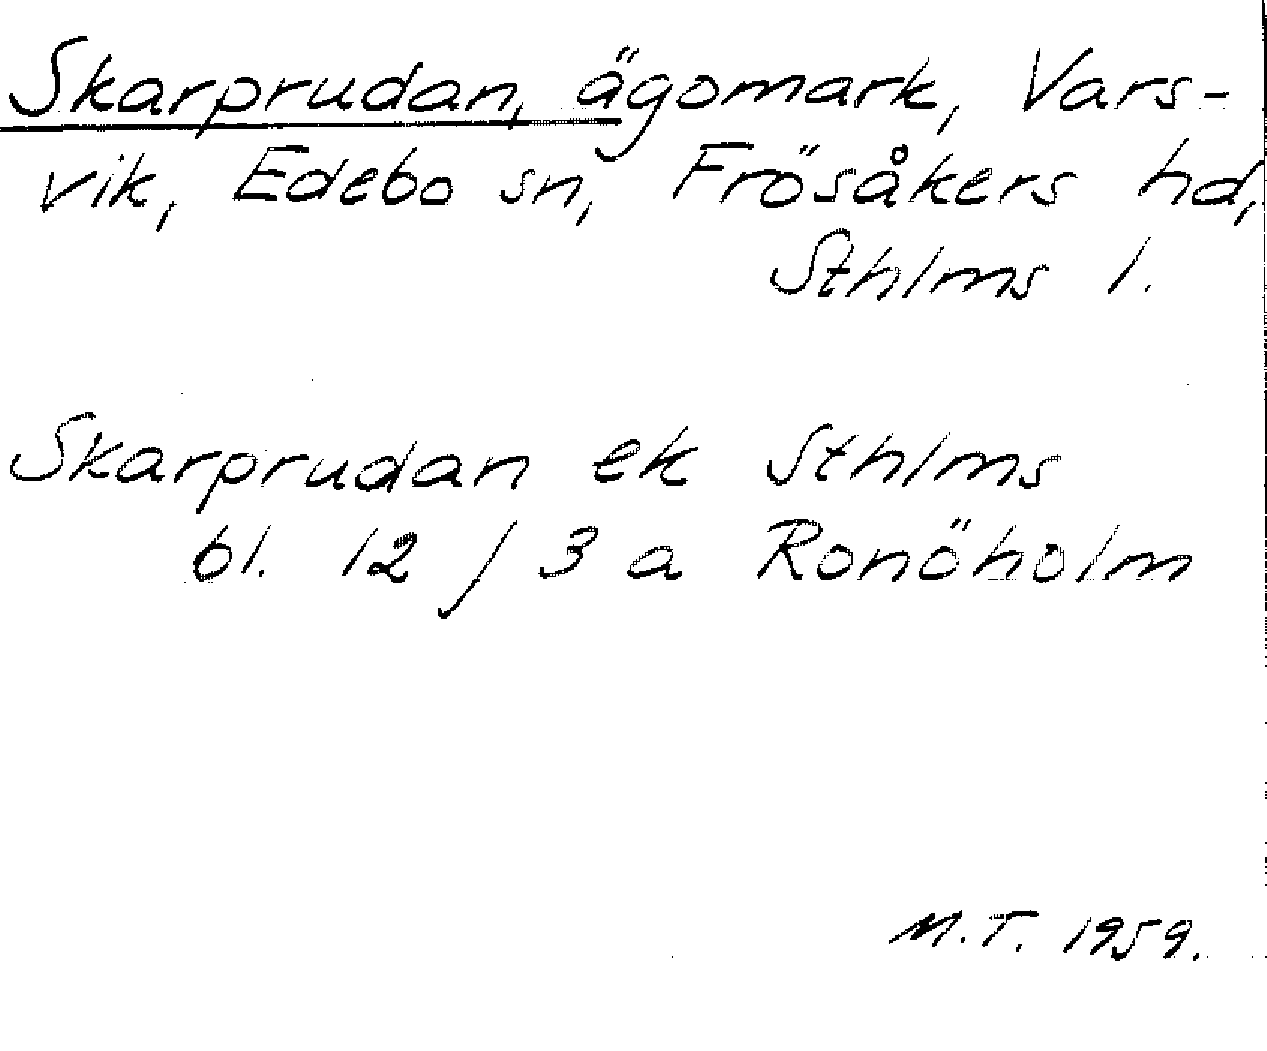 Skarprudan, ägomark, Vars-
vik, Edebo sn, Frösåkers hd,
Sthlms l.
Skarprudan ek Sthlms
bl. 12 / 3 a Ronöholm
M.T. 1959.